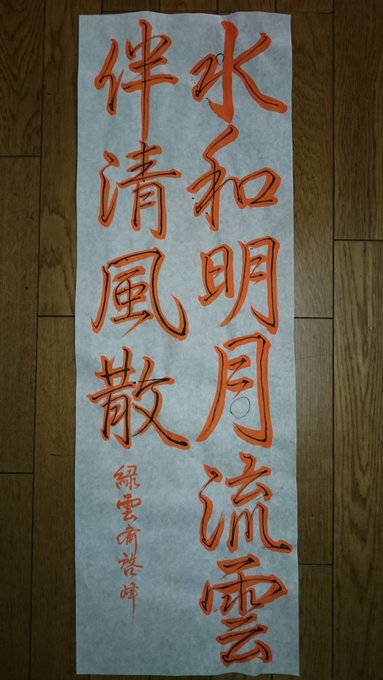 水和明月流雲
伴清風散
緑雲斎啓峰